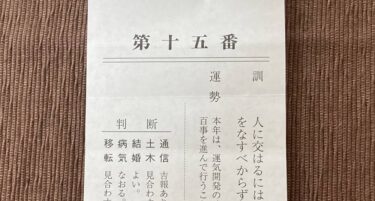 第十五番
訓
人に交はるには
をなすべからず
運勢
本年は、運気開発の
百事を進んで行うこ
判断
通信 吉報あ
土木 見合わ
結婚 よい。
病気 なおる
移転 見合わす